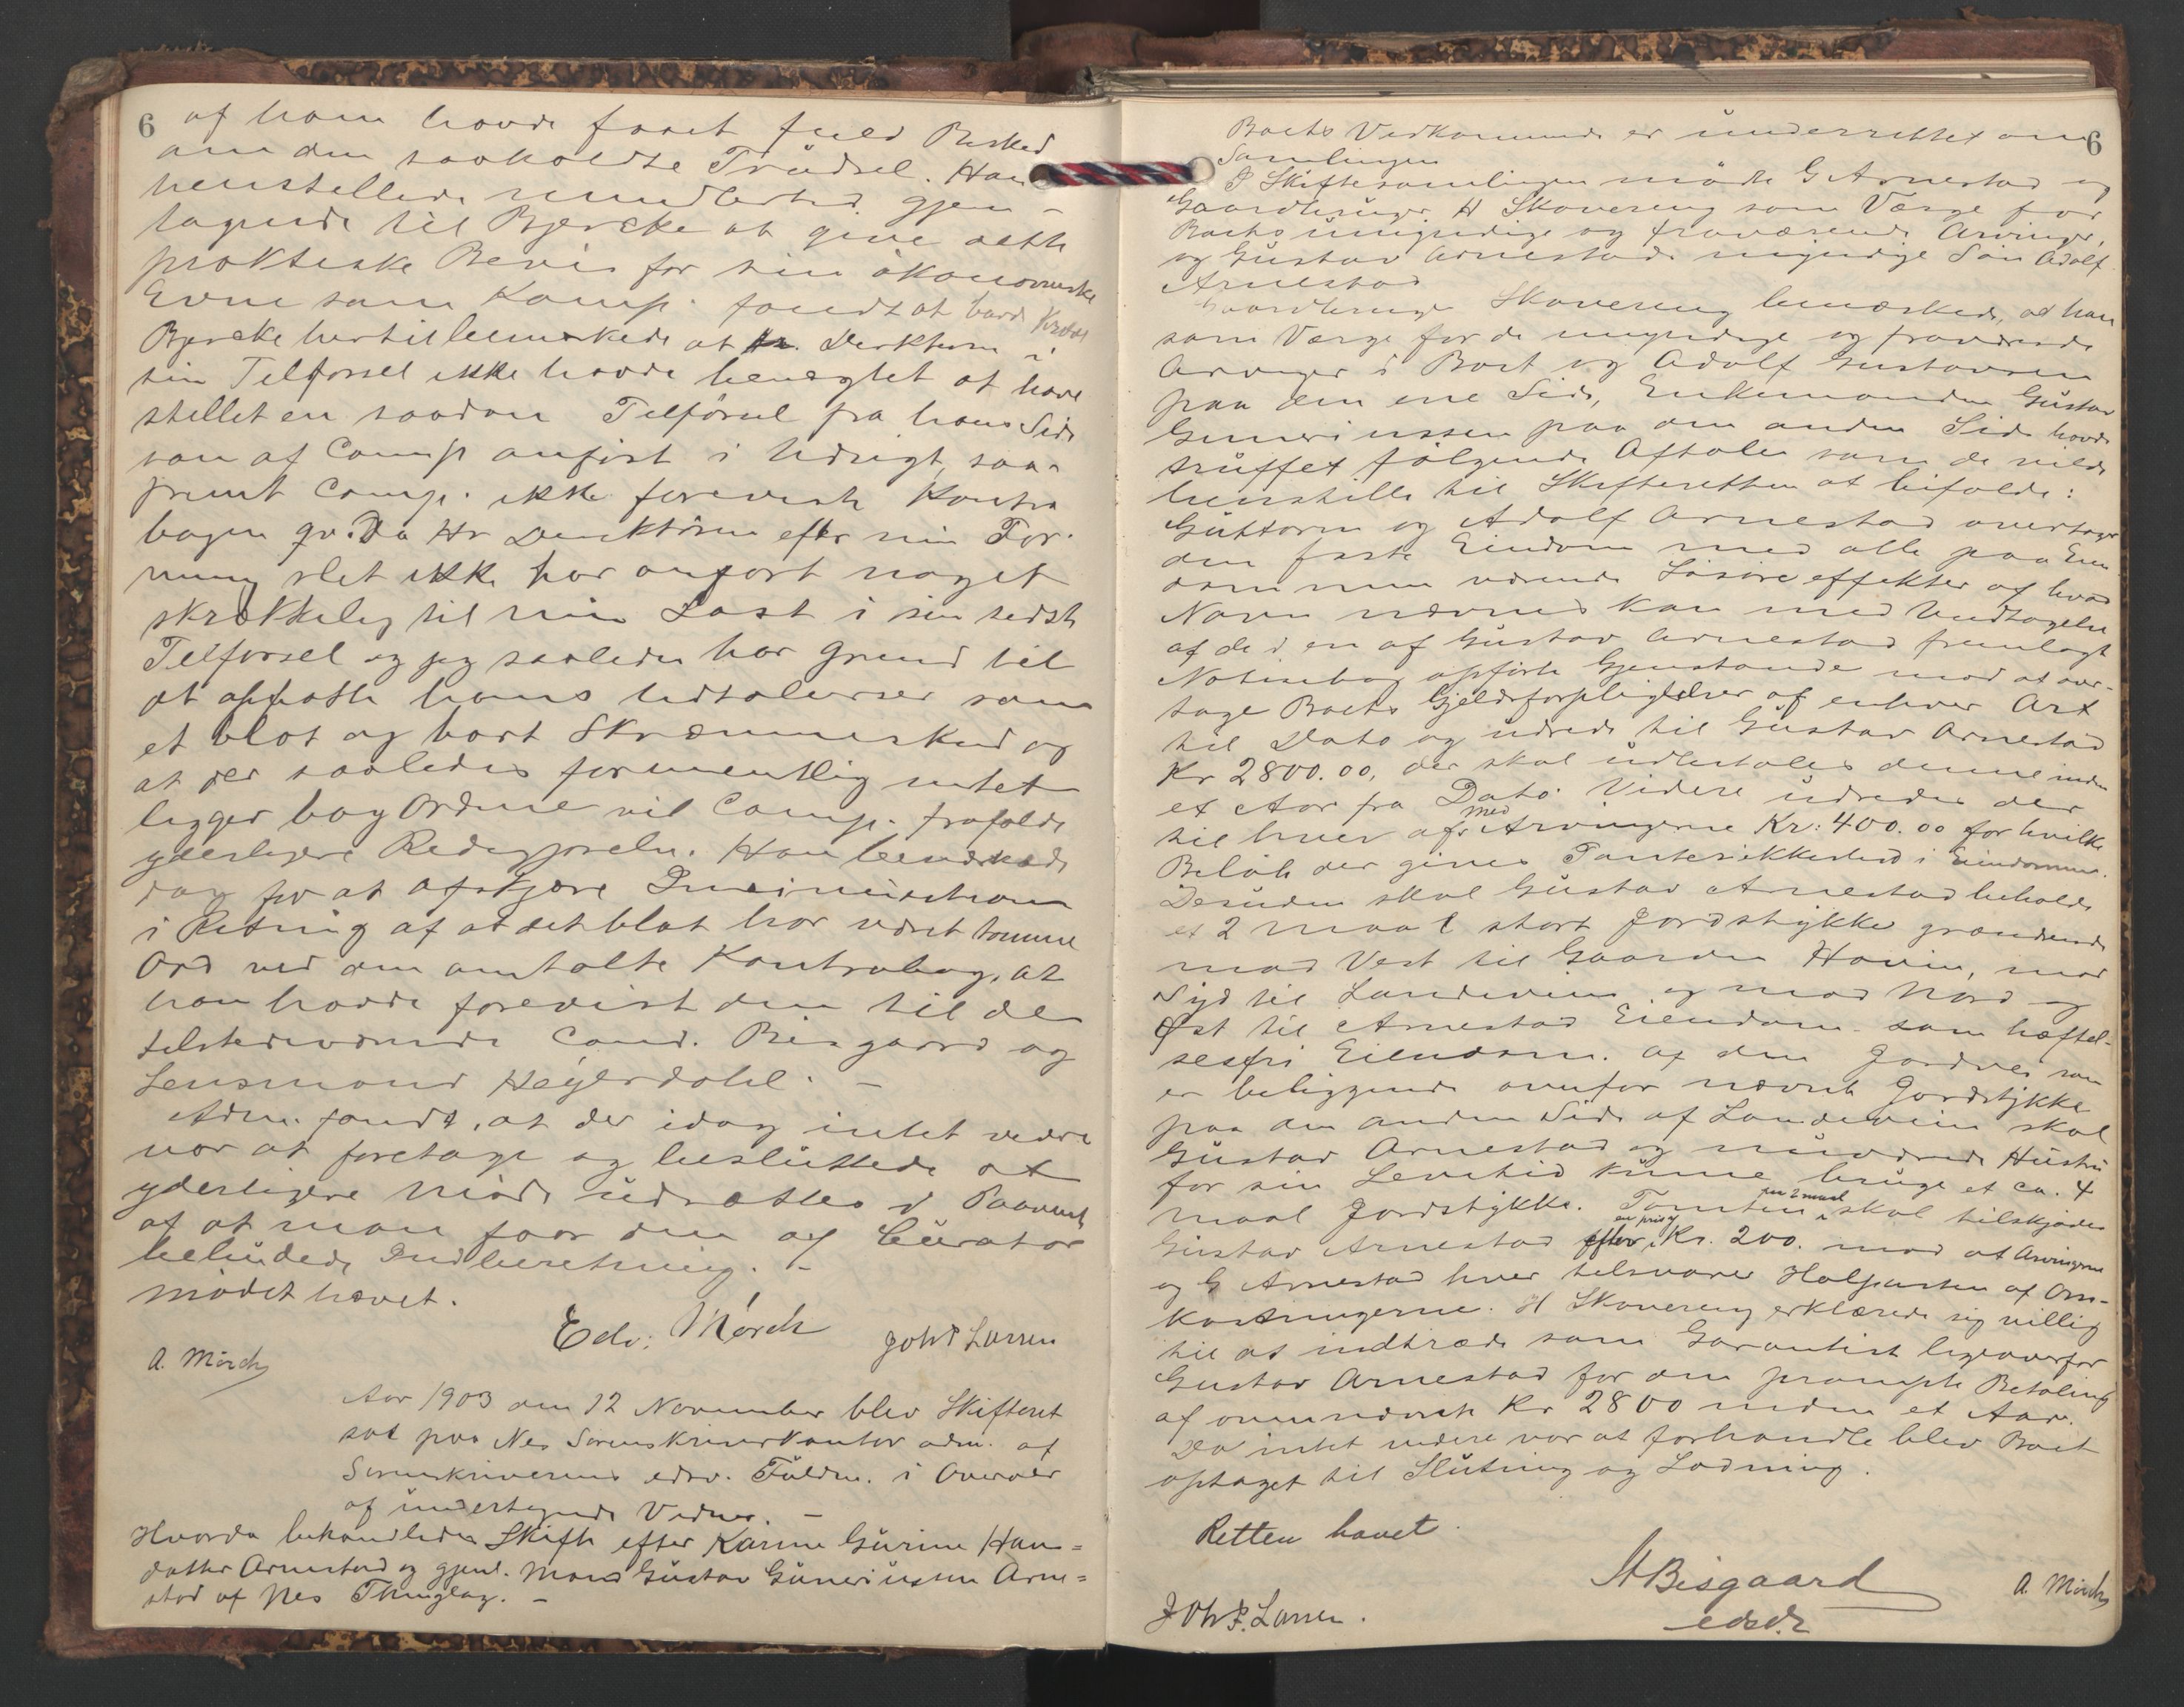 6
af ham havde faaet fuld Besked
om den saakaldte Trudsel. Han
henstillede imidlertid gjen-
tagende til Bjercke at give dette
praktiske Bevis for sin økonomiske
Evne som Komp. fandt at burde kræve
Bjercke hertil bemærkede at Hr. Direktøren i
sin Tilførsel ikke havde benegtet at have
stillet en saadan Tilførsel fra hans Side
som af Comp anført i Udsigt, saa-
fremt Comp. ikke foreviste Kontra
bogen qv. Da Hr Direktøren efter min For-
mening slet ikke har anført noget
skrækkelig til min Last i sin sidste
Tilførsel og jeg saaledes har Grund til
at opfatte hans Udtalelser som
et blot og bart Skræmmeskud og
at der saaledes formentlig intet
ligger bag Ordene vil Comp. frafalde
yderligere Redegjørelse. Han bemærkede
dog for at afskjære Insinuationer
i Retning af at det blot har været tomme
Ord ved den omtalte Kontrabog, at
han havde forevist den til de
tilstedeværende Cand. Bisgaard og
Lensmand Heyerdahl. –
Adm. fandt, at der idag intet videre
var at foretage og besluttede at
yderligere Møde udsættes i Paavente
af at man faar den af Curator
bebudede Indberetning. –
Mødet hævet.
Edv. Mørch Joh P Larsen
A. Mørch
Aar 1903 den 12 November blev Skifteret
sat paa Nes Sorenskriverkontor adm. af
Sorenskriverens edsv. Fuldm. i Overvær
af undertegnede Vidner. –
Hvorda behandledes Skifte efter Karine Gurine Han-
datter Arnestad og gjenl. Mand Gustav Guneriussen Arne-
stad af Nes Thinglag. –
6
Boets Vedkommende er underrettet om
Samlingen
I Skiftesamlingen mødte G Arnestad og
Gaardbruger H Skovereng som Værge for
Boets umyndige og fraværende Arvinger,
og Gustav Arnestads myndige Søn Adolf
Arnestad
Gaardbruger Skovereng bemærkede, at han
som Værge for de umyndige og fraværende
Arvinger i Boet og Adolf Gustavsen
paa den ene Side, Enkemanden Gustav
Guneriussen paa den anden Side havde
truffet følgende Aftale som de vilde
henstille til Skifteretten at bifalde:
Guttorm og Adolf Arnestad overtager
den faste Eiendom med alle paa Eien
dommen værende Løsøreeffekter af hvad
Navn nævnes kan med Undtagelse
af de i en af Gustav Arnestad fremlagt
Notisebog opførte Gjenstande mod at over-
tage Boets Gjeldsforpligtelser af enhver Art
til Dato og udrede til Gustav Arnestad
Kr 2800.00, der skal udbetales denne inden
et Aar fra Dato. Videre udredes der
til hver af Medarvingerne Kr: 400.00 for hvilke
Beløb der gives Pantesikkerhed i Eiendommen.
Desuden skal Gustav Arnestad beholde
et 2 Maal stort Jordstykke grændsende
mod Vest til Gaarden Hovin, mod
Syd til Landeveien og mod Nord og
Øst til Arnestad Eiendom som hæftel-
sesfri Eiendom. Af den Jordvei som
er beliggende ovenfor nævnte Jordstykke
paa den anden Side af Landeveien skal
Gustav Arnestad og nuværende Hustru
for sin Levetid kunne bruge et ca. 4
Maal Jordstykke. Tomten paa 2 maal skal tilskjødes
Gustav Arnestad efter en pris af Kr. 200. mod at Arvingerne
og G Arnestad hver tilsvarer Halparten af Om-
kostningerne. H Skovereng erklærede sig villig
til at indtræde som Garantist ligeoverfor
Gustav Arnestad for den prompte Betaling
af ovennævnte Kr 2800 inden et Aar.
Da intet videre var at forhandle blev Boet
optaget til Slutning og Lodning.
Retten hævet.
A Bisgaard
edsv.
A. Mørch
Joh P. Larsen.